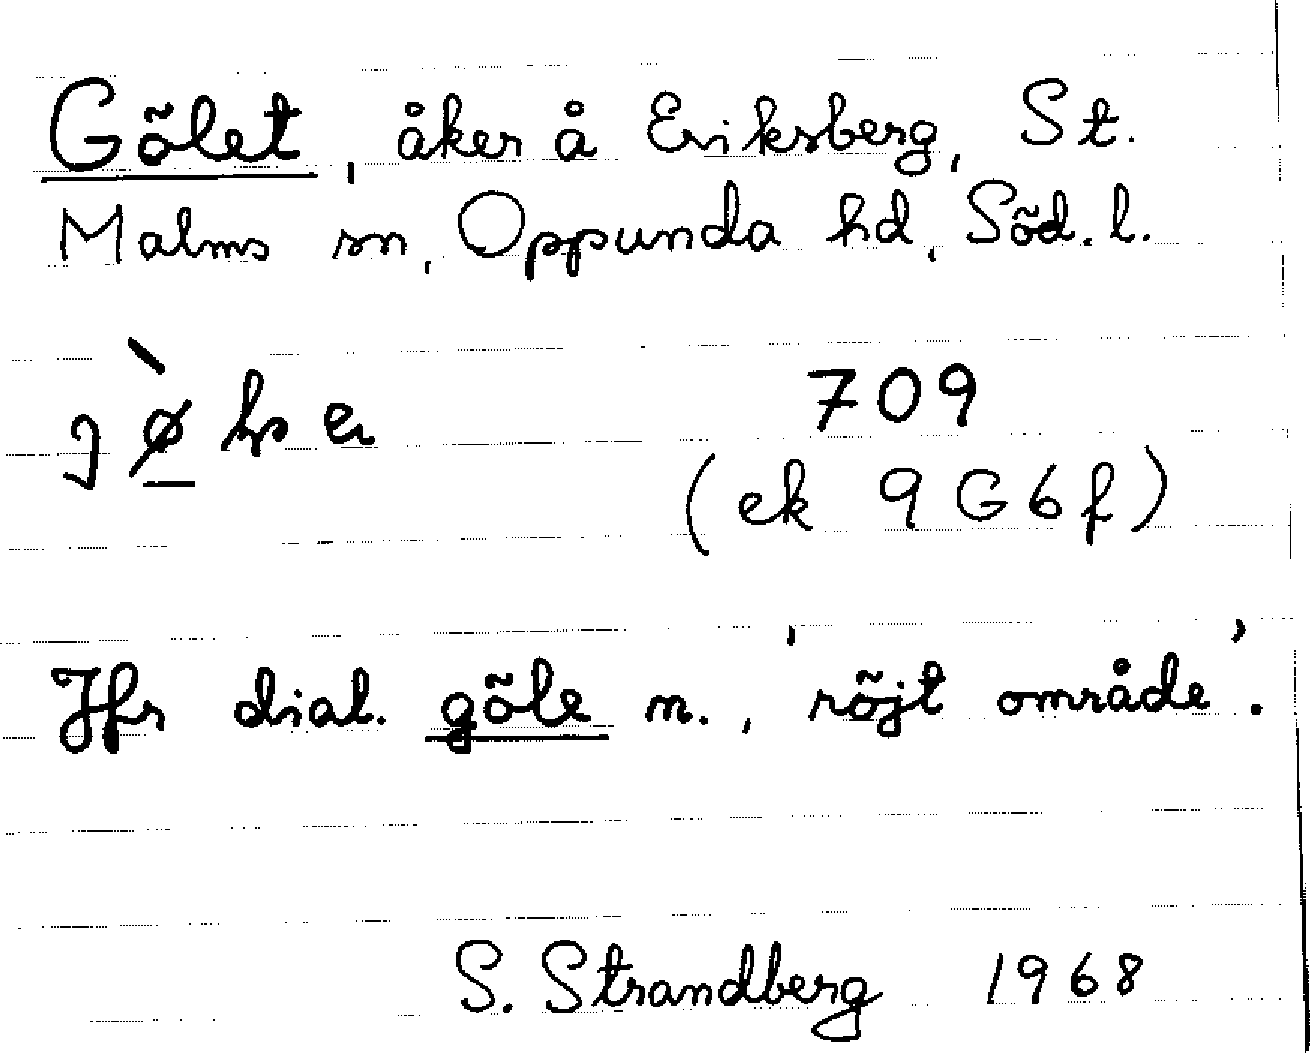 Gölet, åker å Eriksberg, St.
Malms sn, Oppunda hd, Söd. l.
709
(ek 9G6f)
Jfr dial. göle n., 'röjt område'.
S. Strandberg 1968